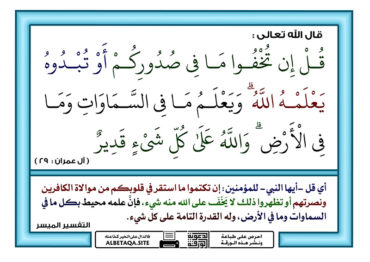 قال الله تعالى :
قُلْ إِن تُخْفُوا مَا فِى صُدُورِكُمْ أَوْ تُبْدُوهُ
يَعْلَمْهُ اللَّهُ ۗ وَيَعْلَمُ مَا فِى السَّمَاوَاتِ وَمَا
فِى الْأَرْضِ ۗ وَاللَّهُ عَلَىٰ كُلِّ شَىْءٍ قَدِيرٌ
( آل عمران : ٢٩ )
أي قل -أيها النبي- للمؤمنين: إن تكتموا ما استقر في قلوبكم من موالاة الكافرين
ونصرتهم أو تظهروا ذلك لا يَخْفَى على الله منه شيء، فإنَّ علمه محيط بكل ما في
السماوات وما في الأرض، وله القدرة التامة على كل شيء.
التفسير الميسر
احرص على طباعة
ونشر هذه الورقة
فالدال على الخير كفاعله
ALBETAQA.SITE